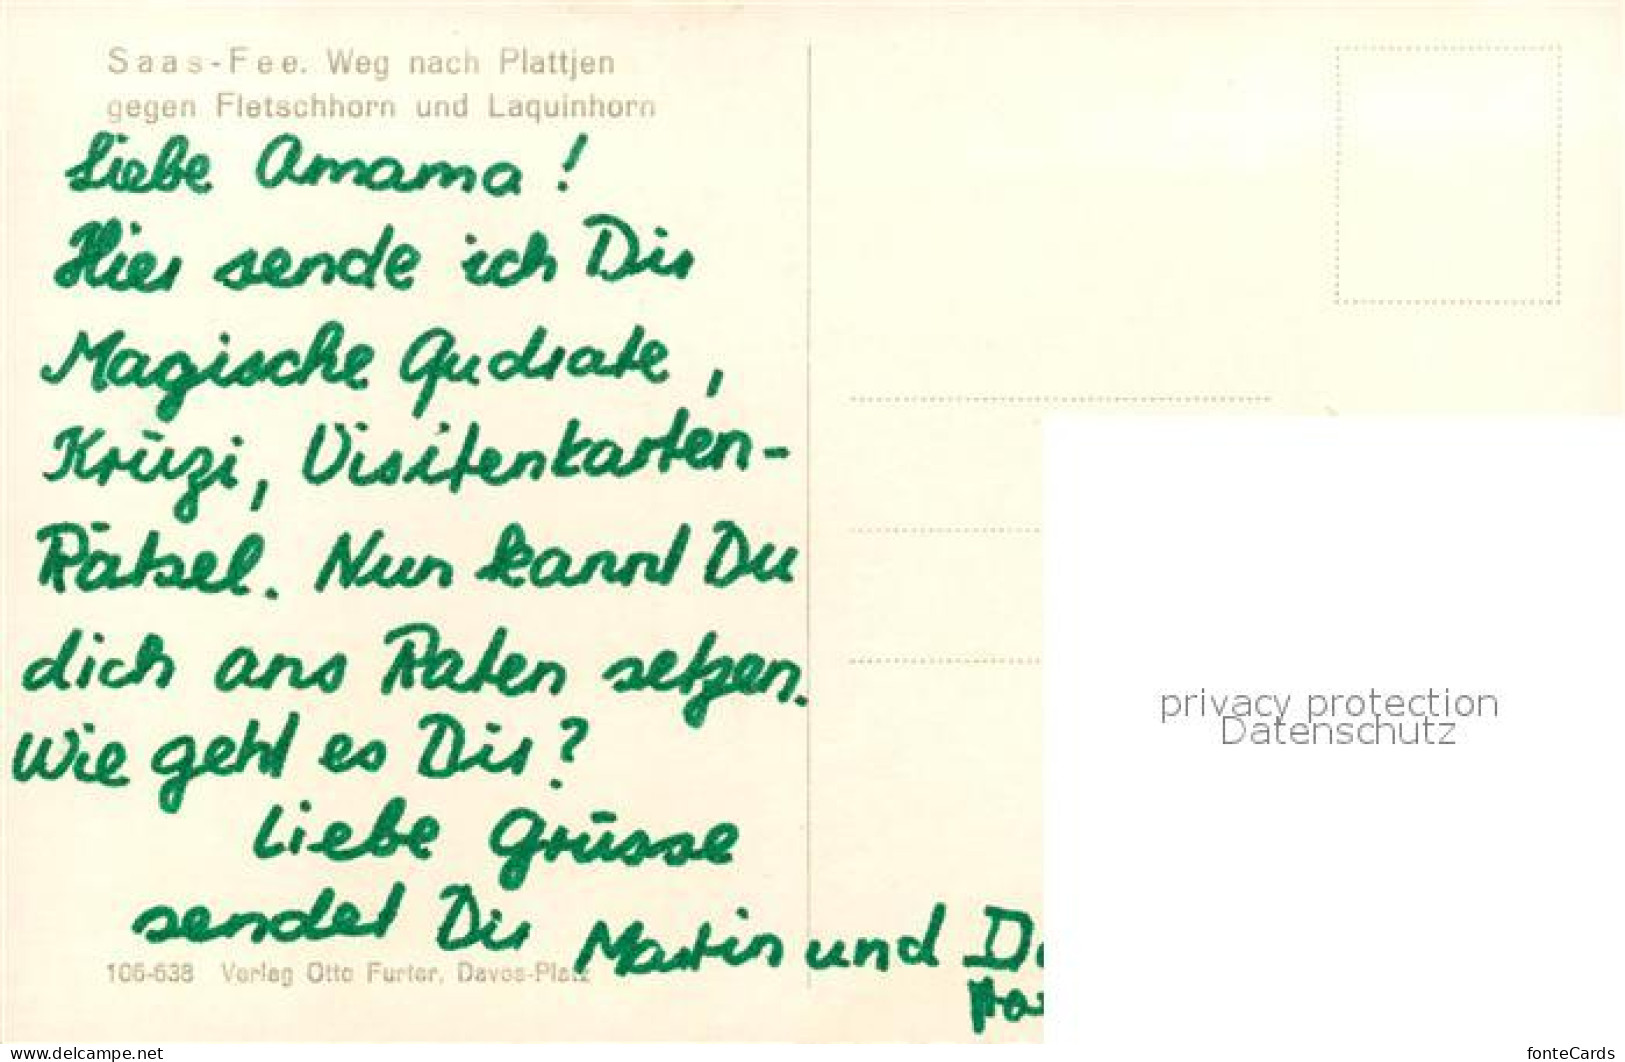 Saas-Fee. Weg nach Plattjen
gegen Fletschhorn und Laquinhorn
Liebe Amama!
Hier sende ich Dir
Magische Qudrate,
Krüzi, Visitenkarten-
Rätsel. Nun kannt Du
dich ans Raten setzen.
Wie geht es Dir?
Liebe Grüsse
sendet Dir Martin und
106-638 Verlag Otto Furter, Davos-Platz
privacy protection
Datenschutz
www.delcampe.net
fonteCards